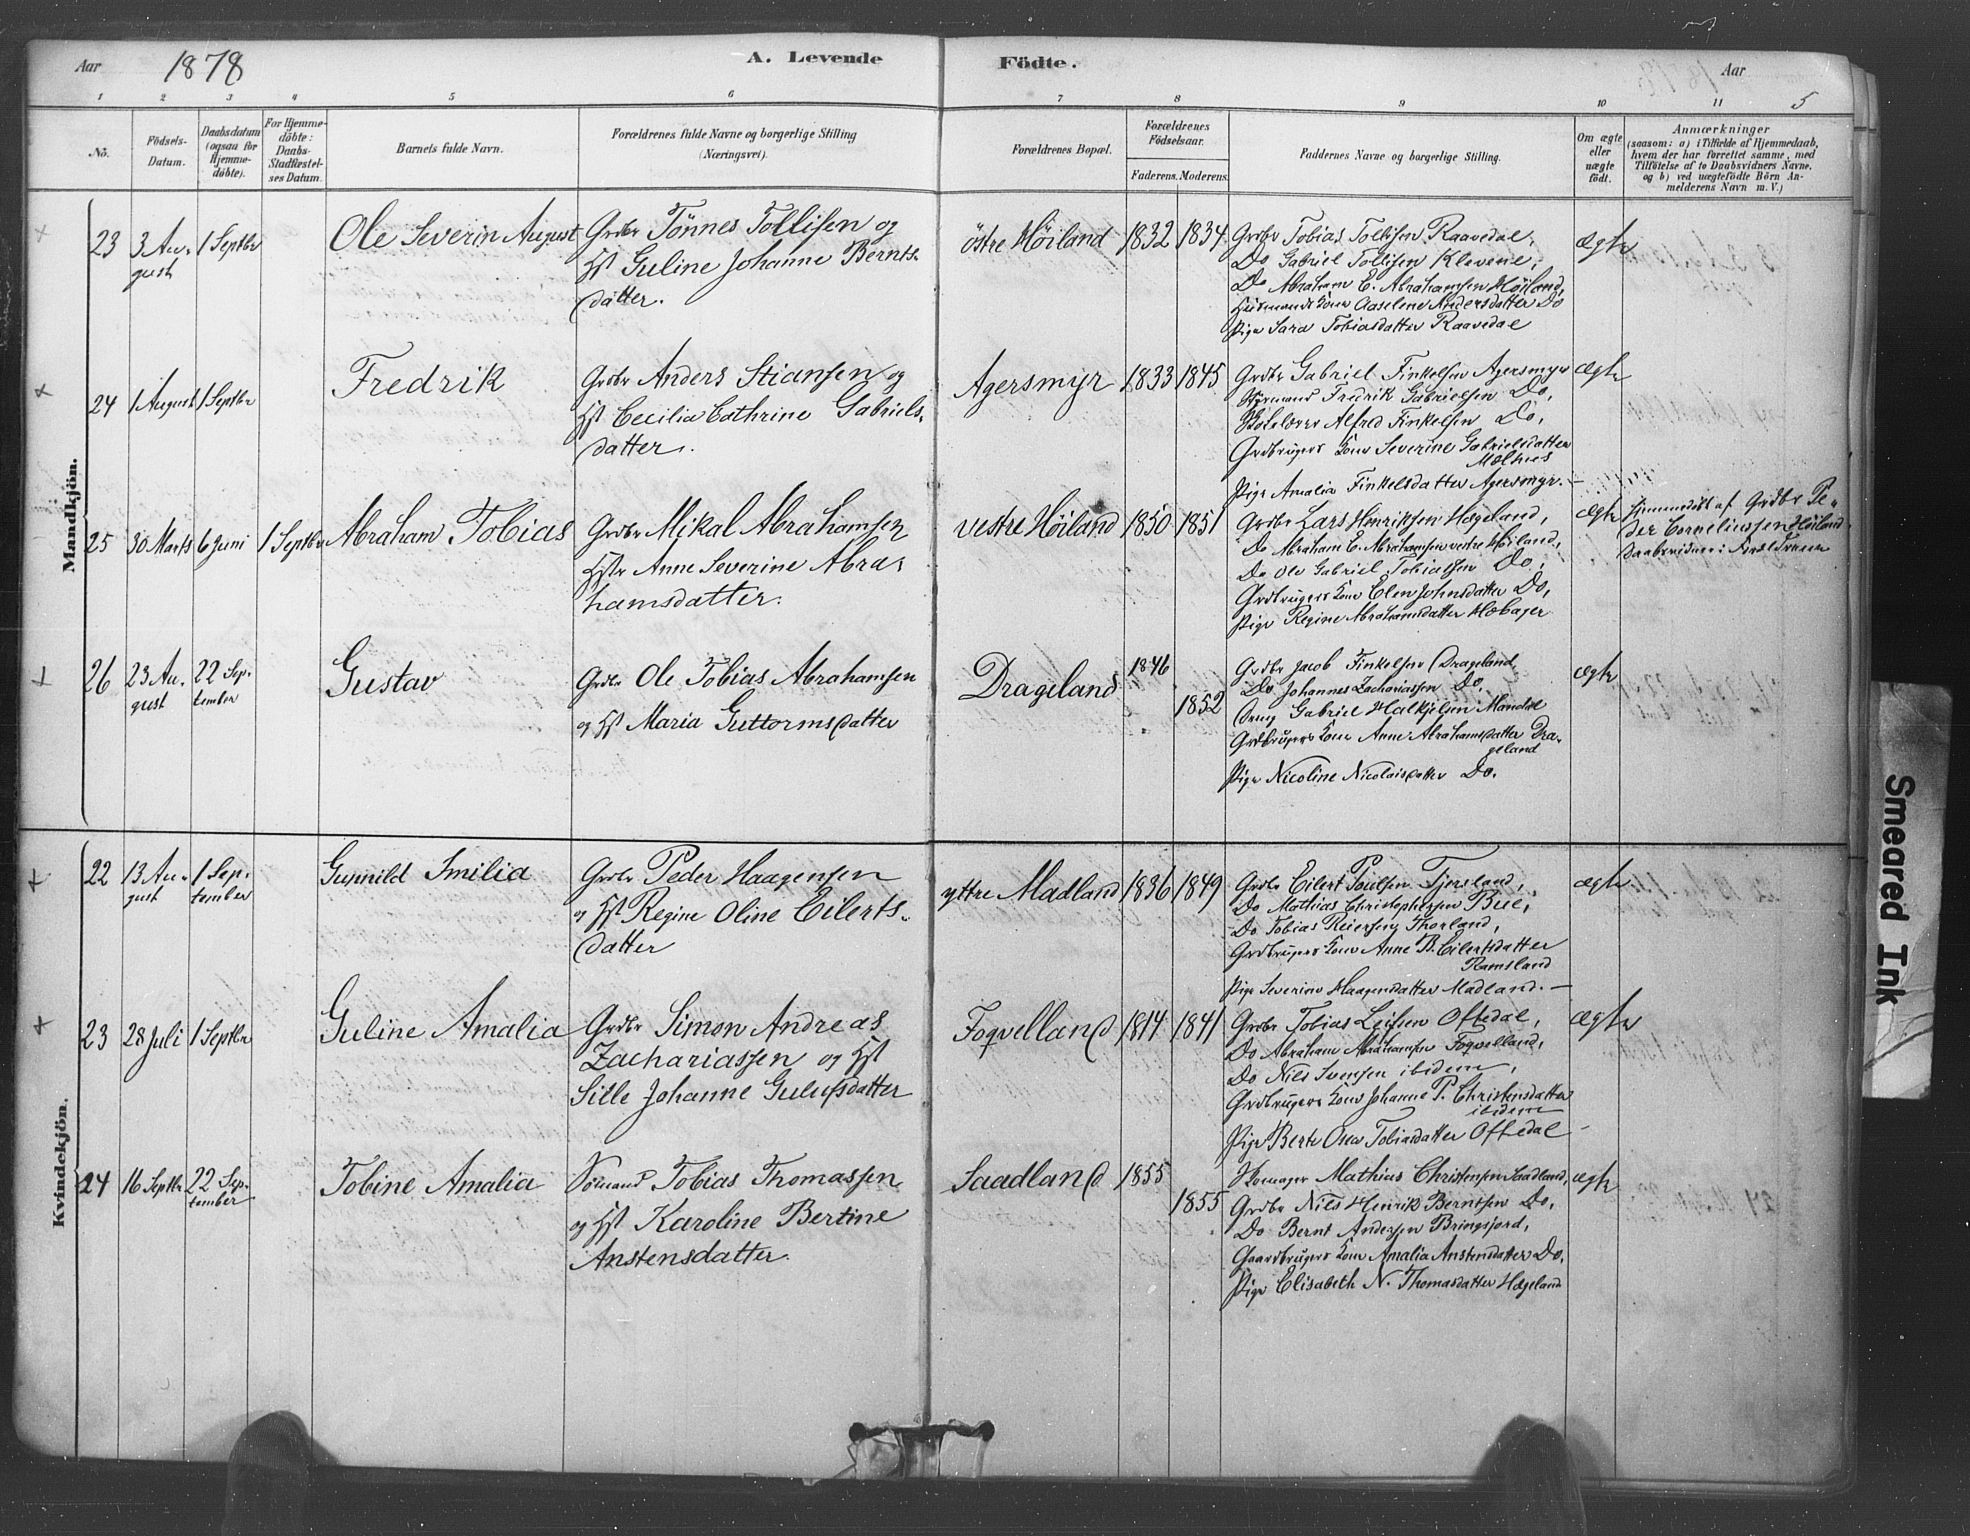 Aar 1878 A. Levende Födte. Aar
1 2 3 4 5 6 7 8 9 10 11 5
No.
Födsels-
Datum.
Daabsdatum
(ogsaa for
Hjemme-
døbte).
For Hjemme-
döbte:
Daabs-
Stadfæstel-
ses Datum.
Barnets fulde Navn.
Forældrenes fulde Navne og borgerlige Stilling
(Næringsvei).
Forældrenes Bopæl.
Forældrenes
Födselsaar.
Faderens. Moderens.
Faddernes Navne og borgerlige Stilling.
Om ægte
eller
uægte
födt.
Anmærkninger
(saasom: a) i Tilfælde af Hjemmedaab,
hvem der har forrettet samme, med
Tilföielse af to Daabsvidners Navne,
og b) ved uægtefödte Börn An-
melderens Navn m. V.)
Mandkjön.
23 3 Au-
gust
1 Septbr
Ole Severin August
Grdbr Tönnes Tollisen og
Hst Guline Johanne Bernts-
datter.
östre Höiland 1832 1834
Grdbr Tobias Tollisen Raavedal,
Do Gabriel Tollisen Klevene,
Do Abraham E. Abrahamsen Höiland,
Huusmands Kone Aaselene Andersdatter Do
Pige Sara Tobiasdatter Raavedal
ægte
24 1 August 1 Septbr
Fredrik
Grdbr Anders Stiansen og
Hst Cecilia Cathrine Gabriels-
datter.
Agersmyr 1833 1845
Grdbr Gabriel Finkelsen Agersmyr
Styrmand Fredrik Gabrielsen Do,
Skolelærer Alfred Finkelsen Do,
Grdbrugers Kone Severine Gabrielsdatter
Mölnes
Pige Amalia Finkelsdatter Agersmyr. –
ægte
25 30 Marts 6 Juni 1 Septbr
Abraham Tobias
Grdbr Mikal Abrahamsen
Hstr Anne Severine Abra-
hamsdatter.
vestre Höiland 1850 1851
Grdbr Lars Henriksen Hægeland,
Do Abraham E. Abrahamsen vestre Höiland,
Do Ole Gabriel Tobiassen Do,
Grdbrugers Kone Elen Johnsdatter Do,
Pige Regine Abrahamsdatter
ægte
Hjemmedöbt af Grdbr Pe-
der Corneliussen Höiland
Daabsvidner:
26 23 Au-
gust
22 Sep-
tember
Gustav
Grdbr Ole Tobias Abrahamsen
og Hst Maria Guttormsdatter
Drageland 1846
1852
Grdbr Jacob Finkelsen Drageland,
Do Johannes Zachariassen Do,
Dreng Gabriel Halkjelsen Mandal
Grdbrugers Kone Anne Abrahamsdatter Dra-
geland
Pige Nicoline Nicolaisdatter Do.
ægte
Kvindekjön.
22 13 Au-
gust
1 Sep-
tember
Gunnild Smilia
Grdbr Peder Haagensen
og Hst Regine Oline Eilerts-
datter
yttre Madland 1836 1849
Grdbr Eilert Poulsen Tjersland,
Do Mathias Christophersen Bue,
Do Tobias Reiersen Thorland,
Grdbrugers Kone Anne B. Eilertsdatter
Ramsland
Pige Severine Haagensdatter Madland. –
ægte
23 28 Juli 1 Septbr
Guline Amalia
Grdbr Simon Andreas
Zachariassen og Hst
Sille Johanne Gulufsdatter
Foqvelland 1814 1841
Grdbr Tobias Leifsen Oftedal,
Do Abraham Abrahamsen Foqvelland,
Do Nils Svensen ibidem,
Grdbrugers Kone Johanne P. Christensdatter
ibidem
Pige Berte Osea Tobiasdatter Oftedal –
ægte
24 16 Septbr 22 Sep-
tember
Tobine Amalia
Sömand Tobias Thomassen
og Hst Karoline Bertine
Anstensdatter.
Saadland 1855
1855
Skomager Mathias Christensen Saadland,
Grdbr Nils Henrik Berntsen Do,
Do Bernt Andersen Bringsjord,
Gaardbrugers Kone Amalia Anstensdatter Do.
Pige Elisabeth N. Thomasdatter Hægeland
ægte
Smeared Ink